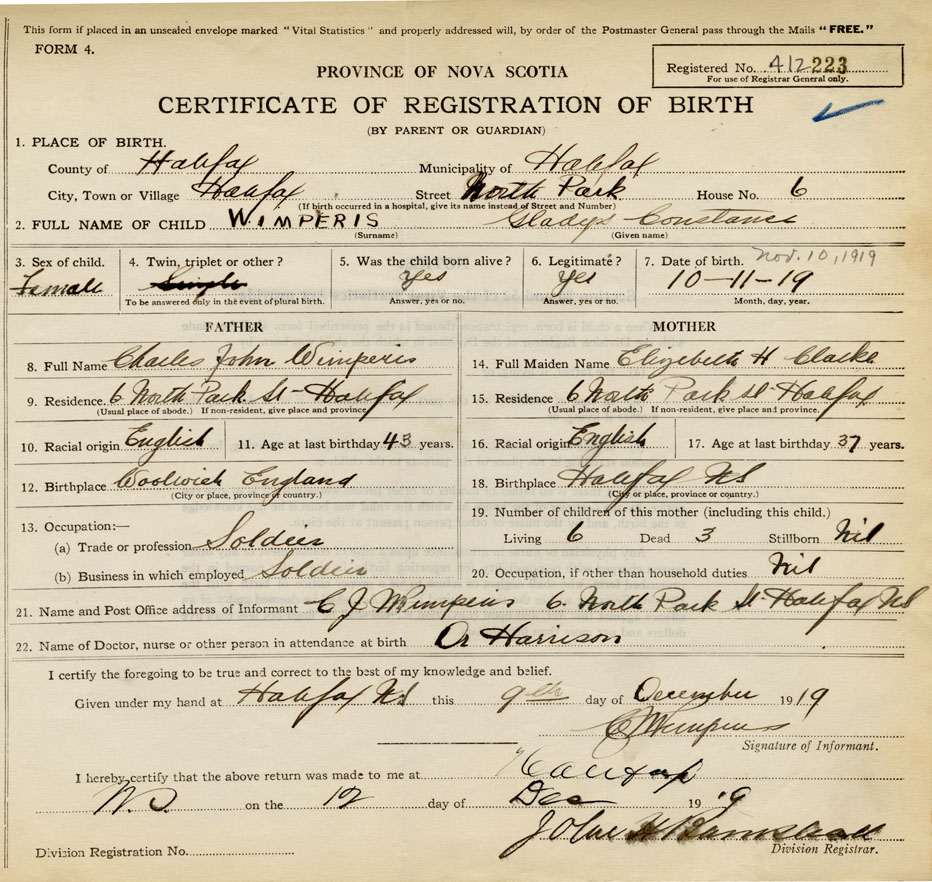 This form if placed in an unsealed envelope marked "Vital Statistics" and properly addressed will, by order of the Postmaster General pass through the Mails "FREE."
FORM 4.
PROVINCE OF NOVA SCOTIA
Registered No. 412223
For use of Registrar General only.
CERTIFICATE OF REGISTRATION OF BIRTH
(BY PARENT OR GUARDIAN)
1. PLACE OF BIRTH.
County of Halifax Municipality of Halifax
City, Town or Village Halifax Street North Park House No. 6
(If birth occurred in a hospital, give its name instead of Street and Number)
2. FULL NAME OF CHILD WIMPERIS Gladys Constance
(Surname) (Given name)
3. Sex of child. 4. Twin, triplet or other? 5. Was the child born alive? 6. Legitimate? 7. Date of birth. Nov. 10, 1919
Female Single Yes Yes 10-11-19
To be answered only in the event of plural birth. Answer, yes or no. Answer, yes or no. Month, day, year.
FATHER MOTHER
8. Full Name Charles John Wimperis 14. Full Maiden Name Elizebeth H Clarke
9. Residence. 6 North Park St Halifax 15. Residence 6 North Park St Halifax
(Usual place of abode.) If non-resident, give place and province. (Usual place of abode.) If non-resident, give place and province.
10. Racial origin English 11. Age at last birthday 43 years. 16. Racial origin English 17. Age at last birthday 37 years.
12. Birthplace Woolwich England 18. Birthplace Halifax NS
(City or place, province or country.) (City or place, province or country.)
13. Occupation:— 19. Number of children of this mother (including this child.)
(a) Trade or profession Soldier Living 6 Dead 3 Stillborn Nil
(b) Business in which employed Soldier 20. Occupation, if other than household duties Nil
21. Name and Post Office address of Informant C J Wimperis 6. North Park St Halifax NS
22. Name of Doctor, nurse or other person in attendance at birth Dr Harrison
I certify the foregoing to be true and correct to the best of my knowledge and belief.
Given under my hand at Halifax NS this 9th day of December 1919
C J Wimperis
Signature of Informant.
I hereby certify that the above return was made to me at Halifax
N.S. on the 12 day of Dec 1919
John
Division Registration No. Division Registrar.